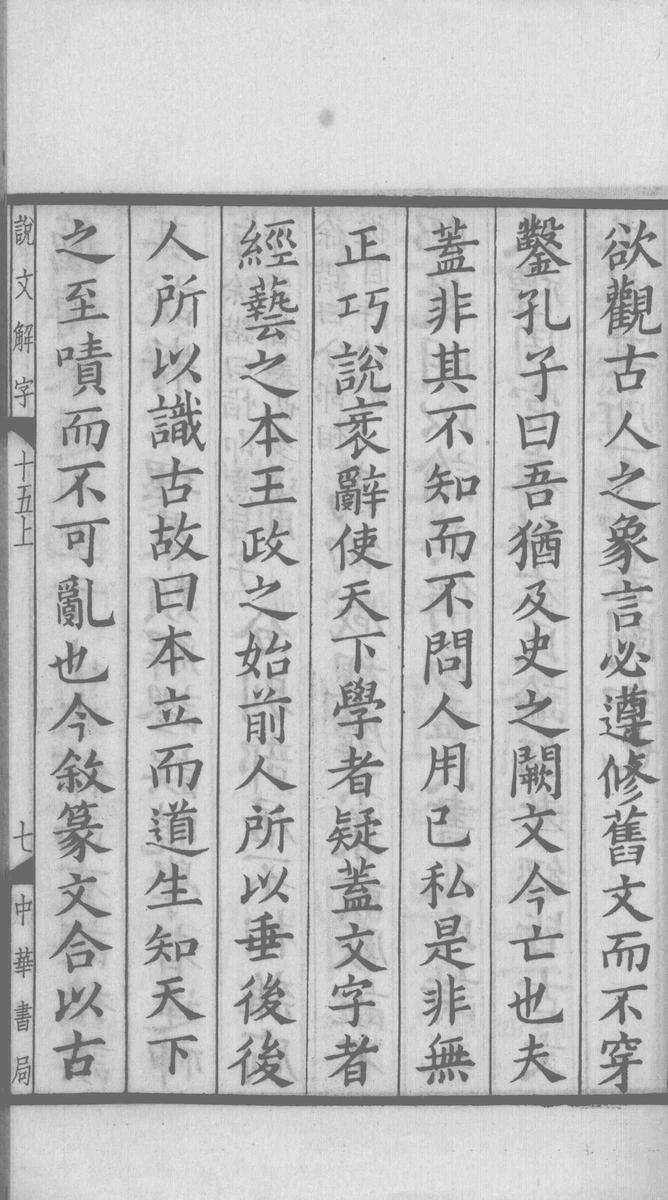 欲觀古人之象言必遵修舊文而不穿
鑿孔子曰吾猶及史之闕文今亡也夫
蓋非其不知而不問人用已私是非無
正巧說衺辭使天下學者疑蓋文字者
經藝之本王政之始前人所以垂後後
人所以識古故曰本立而道生知天下
之至嘖而不可亂也今敘篆文合以古
說文解字
十五上
七
中華書局